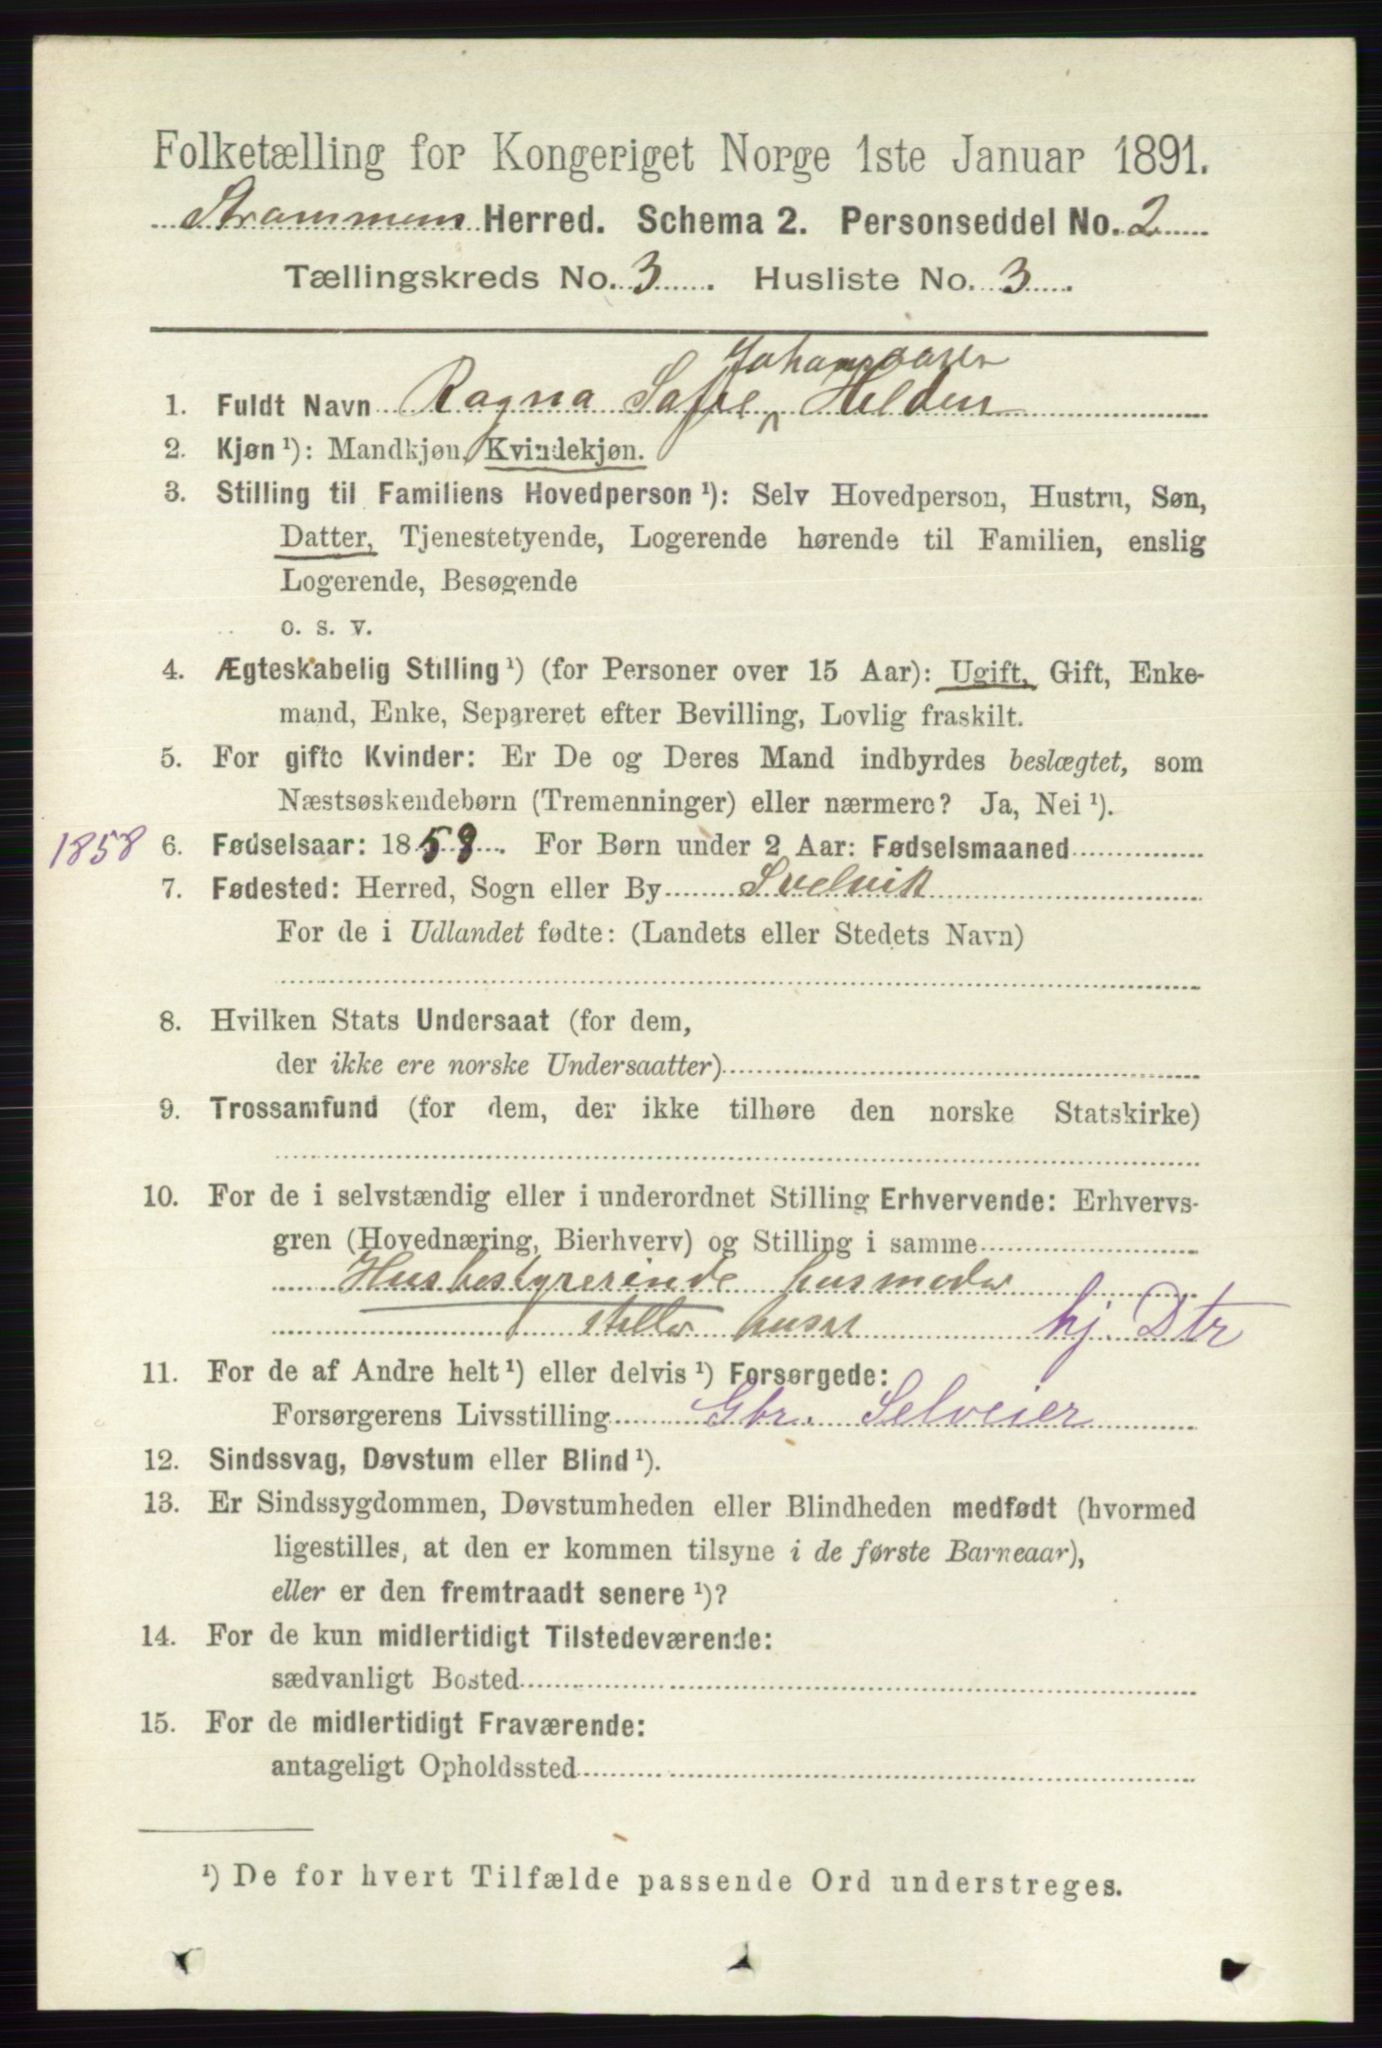 Folketælling for Kongeriget Norge 1ste Januar 1891.
Strømmens Herred. Schema 2. Personseddel No. 2
Tællingskreds No. 3. Husliste No. 3.
Johannesen
1. Fuldt Navn Ragna Sofie Helden
2. Kjøn ¹): Mandkjøn, Kvindekjøn.
3. Stilling til Familiens Hovedperson ¹): Selv Hovedperson, Hustru, Søn,
Datter, Tjenestetyende, Logerende hørende til Familien, enslig
Logerende, Besøgende
o. s. v.
4. Ægteskabelig Stilling ¹) (for Personer over 15 Aar): Ugift, Gift, Enke-
mand, Enke, Separeret efter Bevilling, Lovlig fraskilt.
5. For gifte Kvinder: Er De og Deres Mand indbyrdes beslægtet, som
Næstsøskendebørn (Tremenninger) eller nærmere? Ja, Nei ¹).
1858 6. Fødselsaar: 1858. For Børn under 2 Aar: Fødselsmaaned
7. Fødested: Herred, Sogn eller By Svelvik
For de i Udlandet fødte: (Landets eller Stedets Navn)
8. Hvilken Stats Undersaat (for dem,
der ikke ere norske Undersaatter)
9. Trossamfund (for dem, der ikke tilhøre den norske Statskirke)
10. For de i selvstændig eller i underordnet Stilling Erhvervende: Erhvervs-
gren (Hovednæring, Bierhverv) og Stilling i samme
Husbestyrerinde husmoder
steller huset hj. Dtr
11. For de af Andre helt ¹) eller delvis ¹) Forsørgede:
Forsørgerens Livsstilling Gbr. Selveier
12. Sindssvag, Døvstum eller Blind ¹).
13. Er Sindssygdommen, Døvstumheden eller Blindheden medfødt (hvormed
ligestilles, at den er kommen tilsyne i de første Barneaar),
eller er den fremtraadt senere ¹)?
14. For de kun midlertidigt Tilstedeværende:
sædvanligt Bosted
15. For de midlertidigt Fraværende:
antageligt Opholdssted
¹) De for hvert Tilfælde passende Ord understreges.